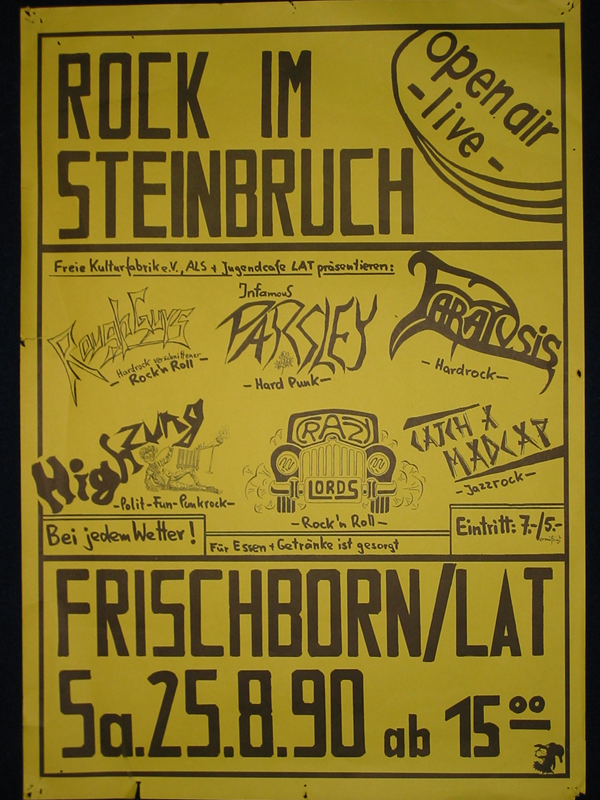 ROCK IM
STEINBRUCH
open air
-live-
Freie Kulturfabrik e.V., ALS + Jugendcafe LAT präsentieren:
Rough Guys
Hardrock verschnittener
- Rock'n Roll -
Infamous
PARSLEY
- Hard Punk -
PARATYSIS
- Hardrock -
Highzung
- Polit-Fun-Punkrock -
CRAZY
LORDS
- Rock'n Roll -
CATCH A
MADCAP
- Jazzrock -
Bei jedem Wetter!
Für Essen + Getränke ist gesorgt
Eintritt: 7.-/5.-
FRISCHBORN/LAT
Sa. 25.8.90 ab 15⁰⁰